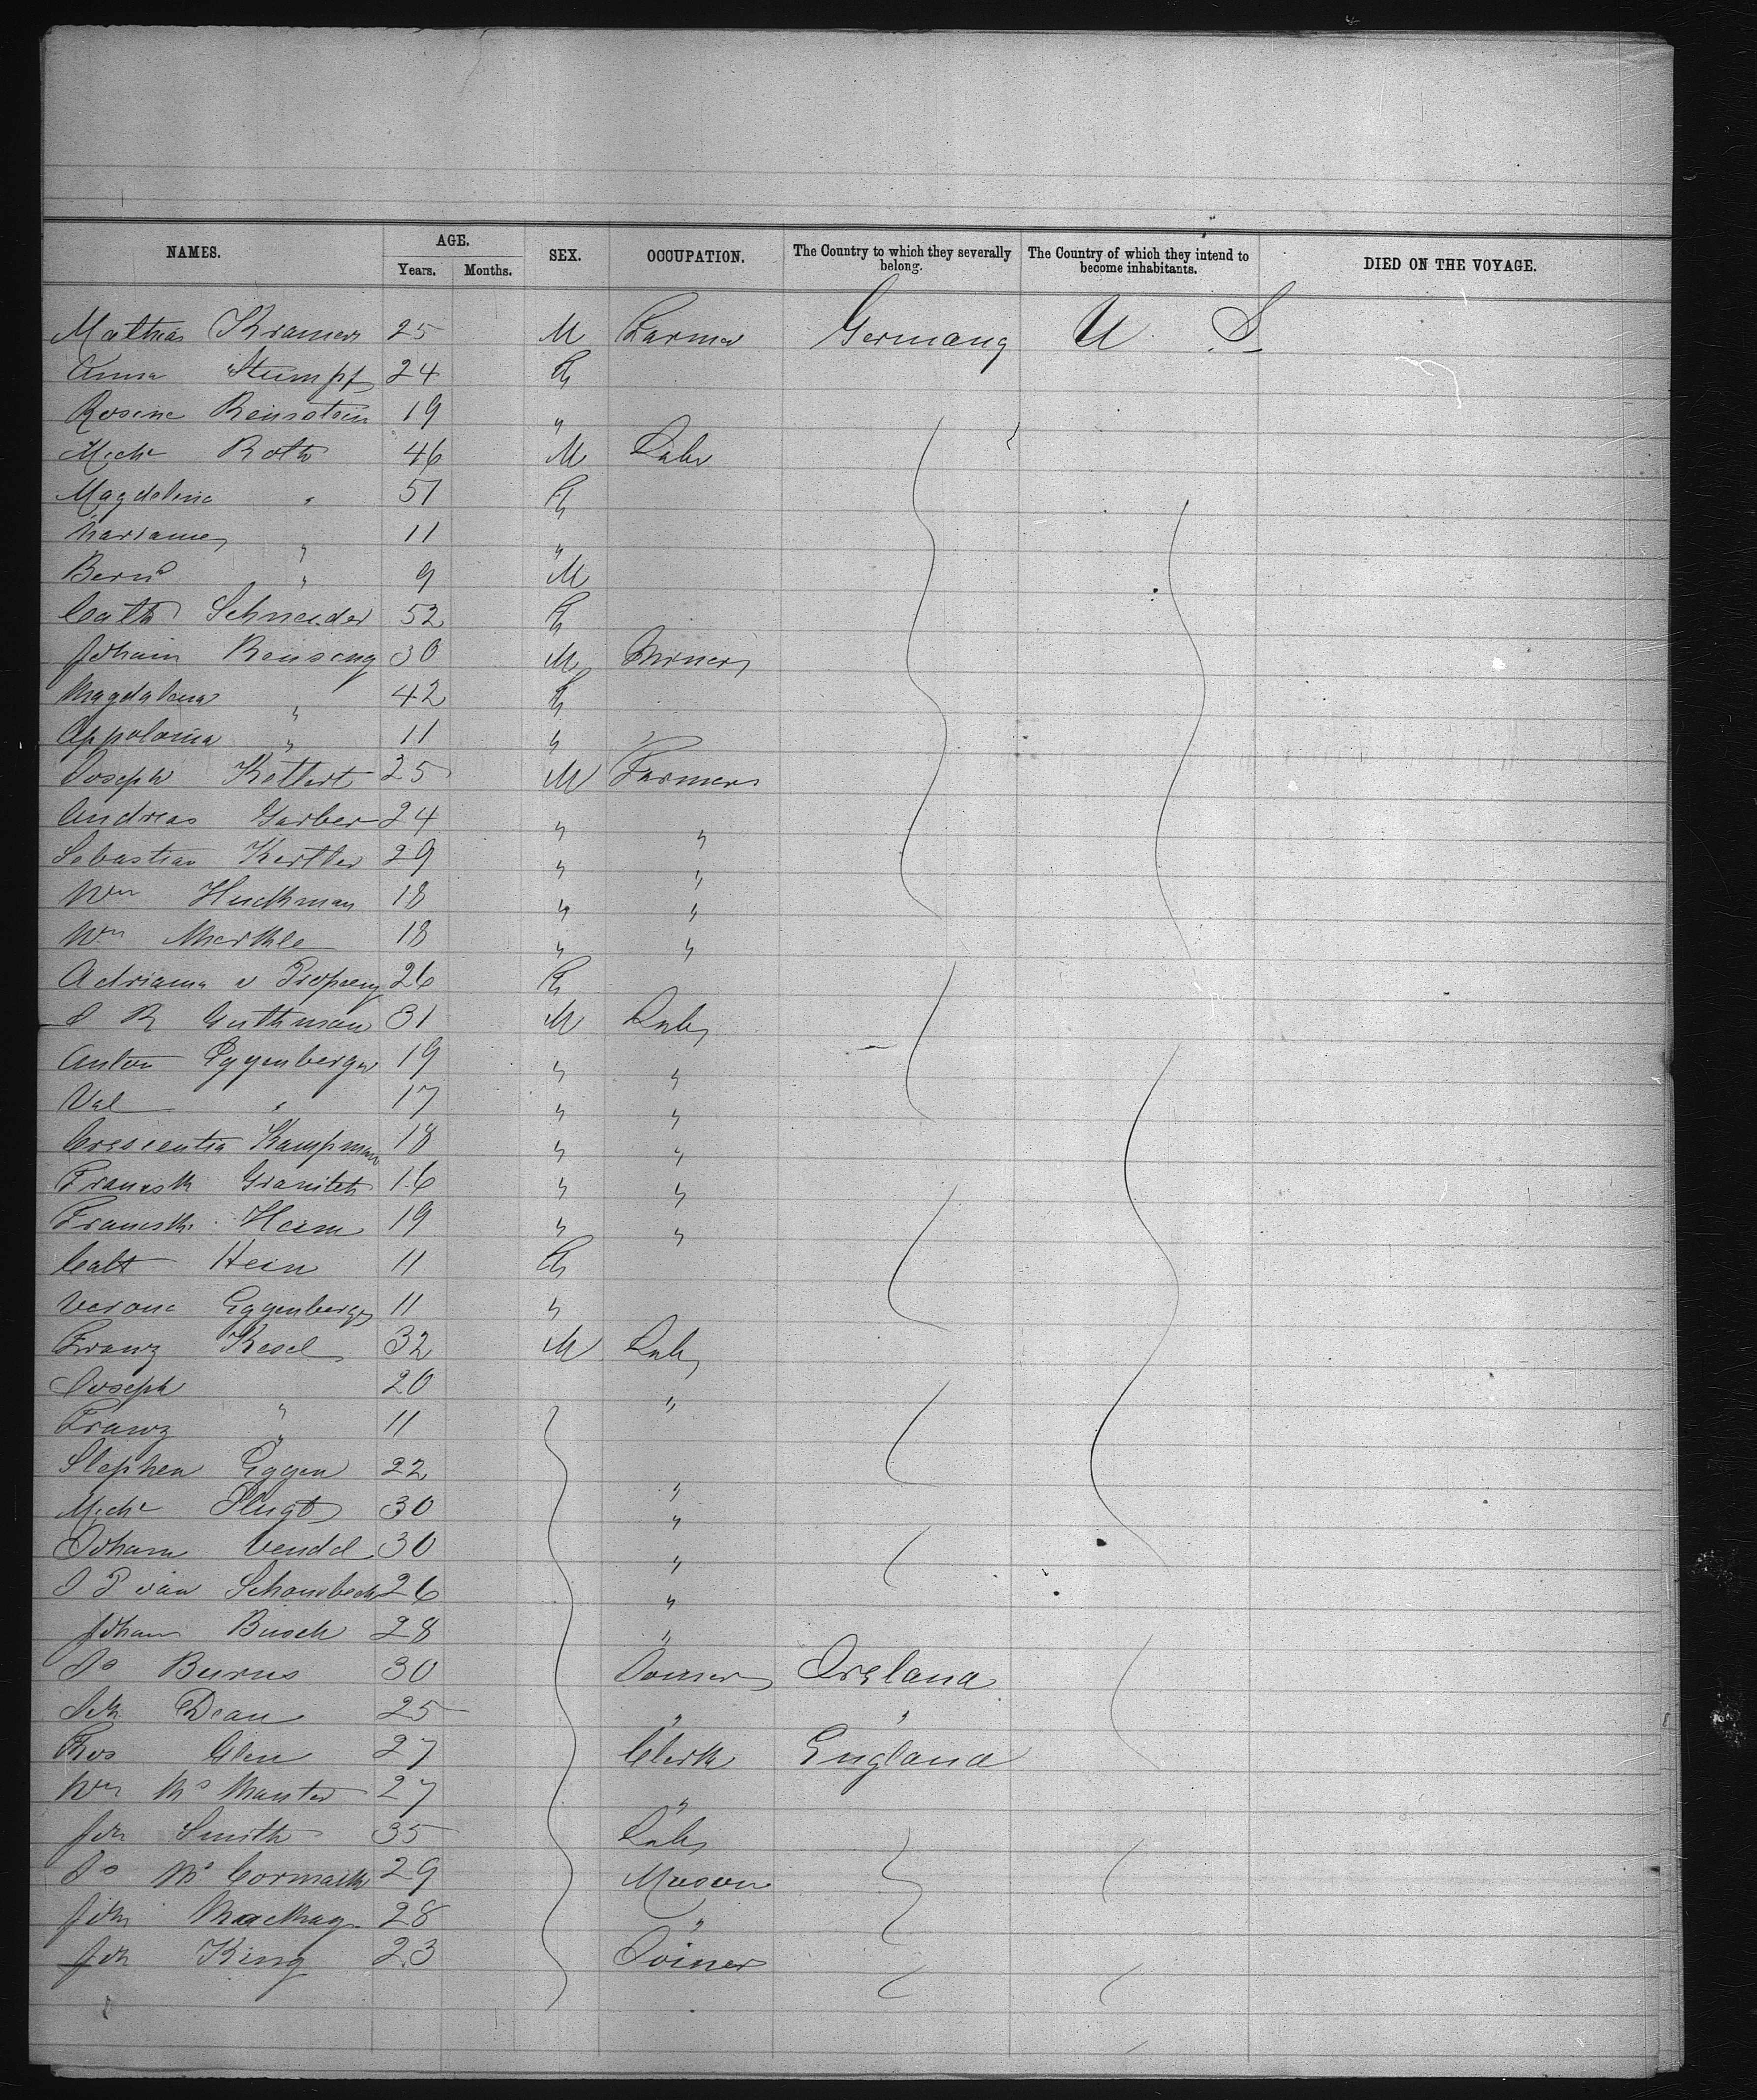 NAMES. AGE. SEX. OCCUPATION. The Country to which they severally belong. The Country of which they intend to become inhabitants. DIED ON THE VOYAGE.
Years. Months.
Mathias Kramer 25 M Farmer Germany U S
Anna Stumpf 24 F
Rosine Reinstein 19 "
Michl Roth 46 M Labr
Magdalina " 51 F
Marianne " 11 "
Bernd " 9 M
Cath Schneider 52 F
Johann Rensing 30 M Miner
Magdalena " 42 F
Appolonia " 11 "
Joseph Kettert 25 M Farmers
Andreas Garber 24 " "
Sebastian Kertler 29 " "
Wm Huckman 18 " "
Wm Merkle 18 " "
Adriana v 26 F
J R Guthman 31 M Labr
Anton Eggenberger 19 " "
Val " 17 " "
Crescentia Kampman 18 " "
Francsk Granitch 16 " "
Francsk Heim 19 " "
Cath Hein 11 F
Verona Eggenberger 11 "
Franz Kesel 32 M Labr
Joseph " 20 "
Franz " 11
Stephen Eggen 22 "
Michl Plugt 30 "
Johann Vendel 30 "
J P van Schonsbeck 26 "
Johann Busch 28 "
Jo Burns 30 Joiner Ireland
Jak Dean 25 " "
Thos Glen 27 Clerk England
Wm Mc Manter 27 "
Joh Smith 35 Labr
Jo Mc Cormack 29 Mason
John MacKay 28 "
Joh King 23 Joiner